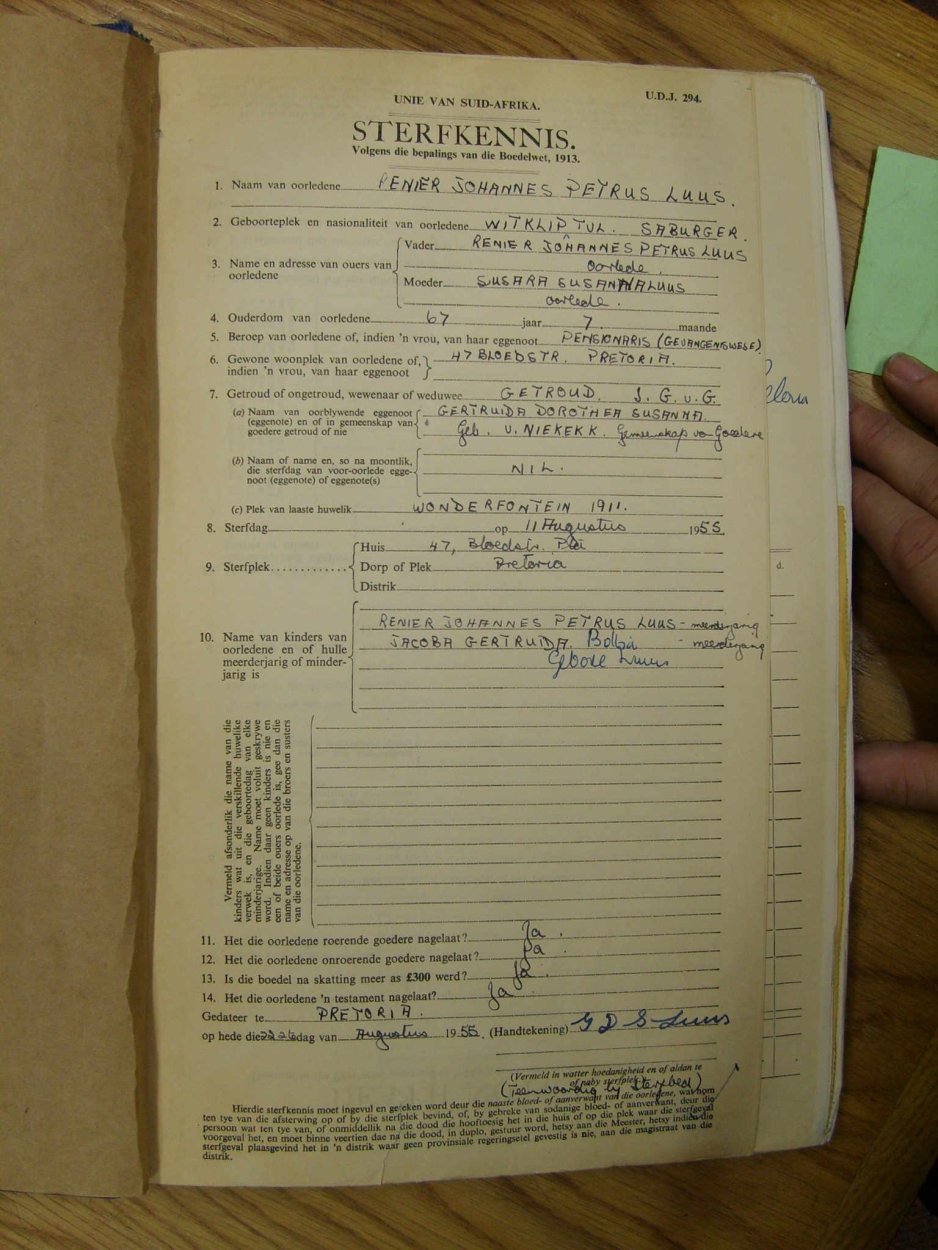 U.D.J. 294.
UNIE VAN SUID-AFRIKA.
STERFKENNIS.
Volgens die bepalings van die Boedelwet, 1913.
1. Naam van oorledene RENIER JOHANNES PETRUS LUUS.
2. Geboorteplek en nasionaliteit van oorledene WITKLIP TVL. SABURGER.
3. Name en adresse van ouers van oorledene
Vader RENIER JOHANNES PETRUS LUUS
oorlede.
Moeder SUSARA SUSANNA LUUS
oorlede.
4. Ouderdom van oorledene 67 jaar 7 maande
5. Beroep van oorledene of, indien 'n vrou, van haar eggenoot PENSIONARIS (GEVANGENISWESE)
6. Gewone woonplek van oorledene of, 47 BLOEDSTR. PRETORIA.
indien 'n vrou, van haar eggenoot
7. Getroud of ongetroud, wewenaar of weduwee GETROUD. I.G.v.G.
(a) Naam van oorblywende eggenoot GERTRUIDA DOROTHEA SUSANNA.
(eggenote) en of in gemeenskap van
goedere getroud of nie Geb. V. NIEKEKK. Gemeenskap van Goedere
(b) Naam of name en, so na moontlik,
die sterfdag van voor-oorlede egge- NIL.
noot (eggenote) of eggenote(s)
(c) Plek van laaste huwelik WONDERFONTEIN 1911.
8. Sterfdag op 11 Augustus 1955.
9. Sterfplek
Huis 47, Bloedstr. Pta
Dorp of Plek Pretoria
Distrik
10. Name van kinders van
oorledene en of hulle
meerderjarig of minder-
jarig is
RENIER JOHANNES PETRUS LUUS - meerderjarig
JACOBA GERTRUIDA - meerderjarig
Gebore Luus
Vermeld afsonderlik die name van die
kinders wat uit die verskillende huwelike
verwek is, en die geboortedag van elke
minderjarige. Name moet voluit geskrywe
word. Indien daar geen kinders is nie en
een of beide ouers oorlede is, gee dan die
name en adresse op van die broers en susters
van die oorledene.
11. Het die oorledene roerende goedere nagelaat? Ja.
12. Het die oorledene onroerende goedere nagelaat? Ja.
13. Is die boedel na skatting meer as £300 werd? Ja.
14. Het die oorledene 'n testament nagelaat? Ja
Gedateer te PRETORIA.
op hede die dag van Augustus 1955. (Handtekening) G D S Luus
(Vermeld in watter hoedanigheid en of aldan te
of naby sterfplek.)
(Teenwoordig by Sterfbed)
Hierdie sterfkennis moet ingevul en geteken word deur die naaste bloed- of aanverwant van die oorledene, wat hom
ten tye van die afsterwing op of by die sterfplek bevind, of, by gebreke van sodanige bloed- of aanverwant, deur die
persoon wat ten tye van, of onmiddellik na die dood die hooftoesig het in die huis of op die plek waar die sterfgeval
voorgeval het, en moet binne veertien dae na die dood, in duplo, gestuur word, hetsy aan die Meester, hetsy indien die
sterfgeval plaasgevind het in 'n distrik waar geen provinsiale regeringsetel gevestig is nie, aan die magistraat van die
distrik.
d.